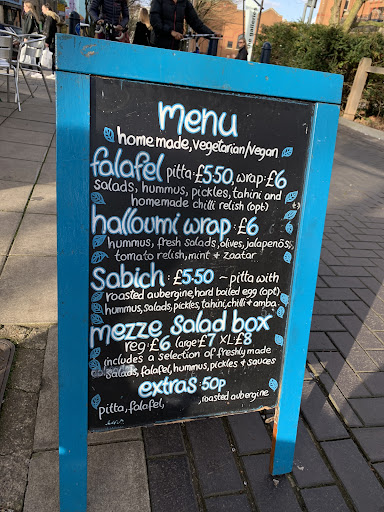 menu
homemade, vegetarian/vegan
falafel pitta: £5.50, wrap: £6
salads, hummus, pickles, tahini and
homemade chilli relish (opt)
halloumi wrap: £6
hummus, fresh salads, olives, jalapenos,
tomato relish, mint + zaatar
Sabich: £5.50 ~ pitta with
roasted aubergine, hard boiled egg (opt)
hummus, salads, pickles, tahini, chilli + amba
mezze salad box
reg: £6 large: £7 XL: £8
includes a selection of freshly made
salads, falafel, hummus, pickles + sauces
extras: 50p
pitta, falafel, , roasted aubergine